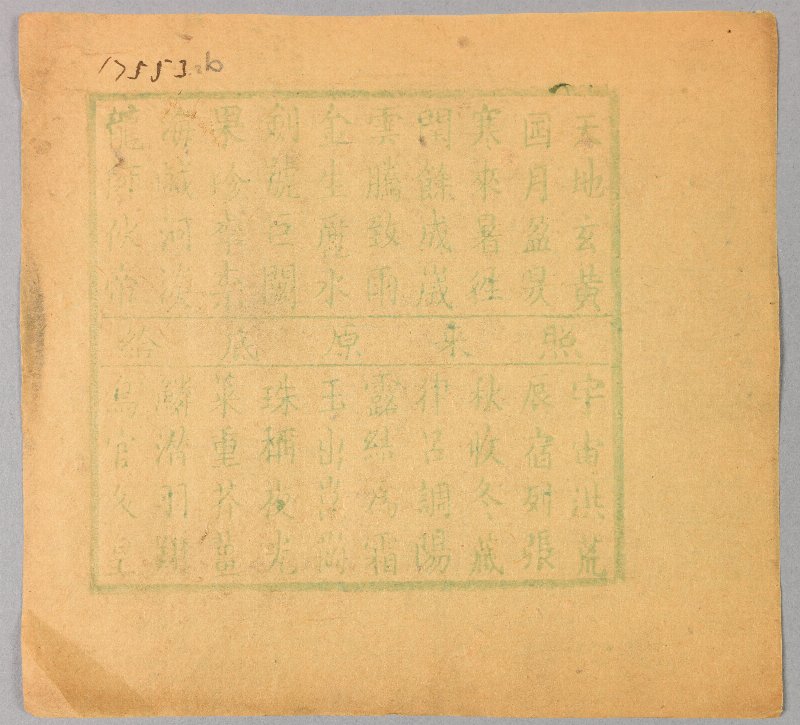 17553.b
天地玄黃
囸月盈昃
寒來暑往
閏餘成歲
雲騰致雨
金生麗水
劍號巨闕
果珍李柰
海鹹河淡
龍師伙帝
照来原底給
宇宙洪荒
辰宿列張
秋收冬藏
律呂調陽
露結為霜
玉出崑崗
珠稱夜光
菜重芥薑
鱗潛羽翔
鳥官人皇